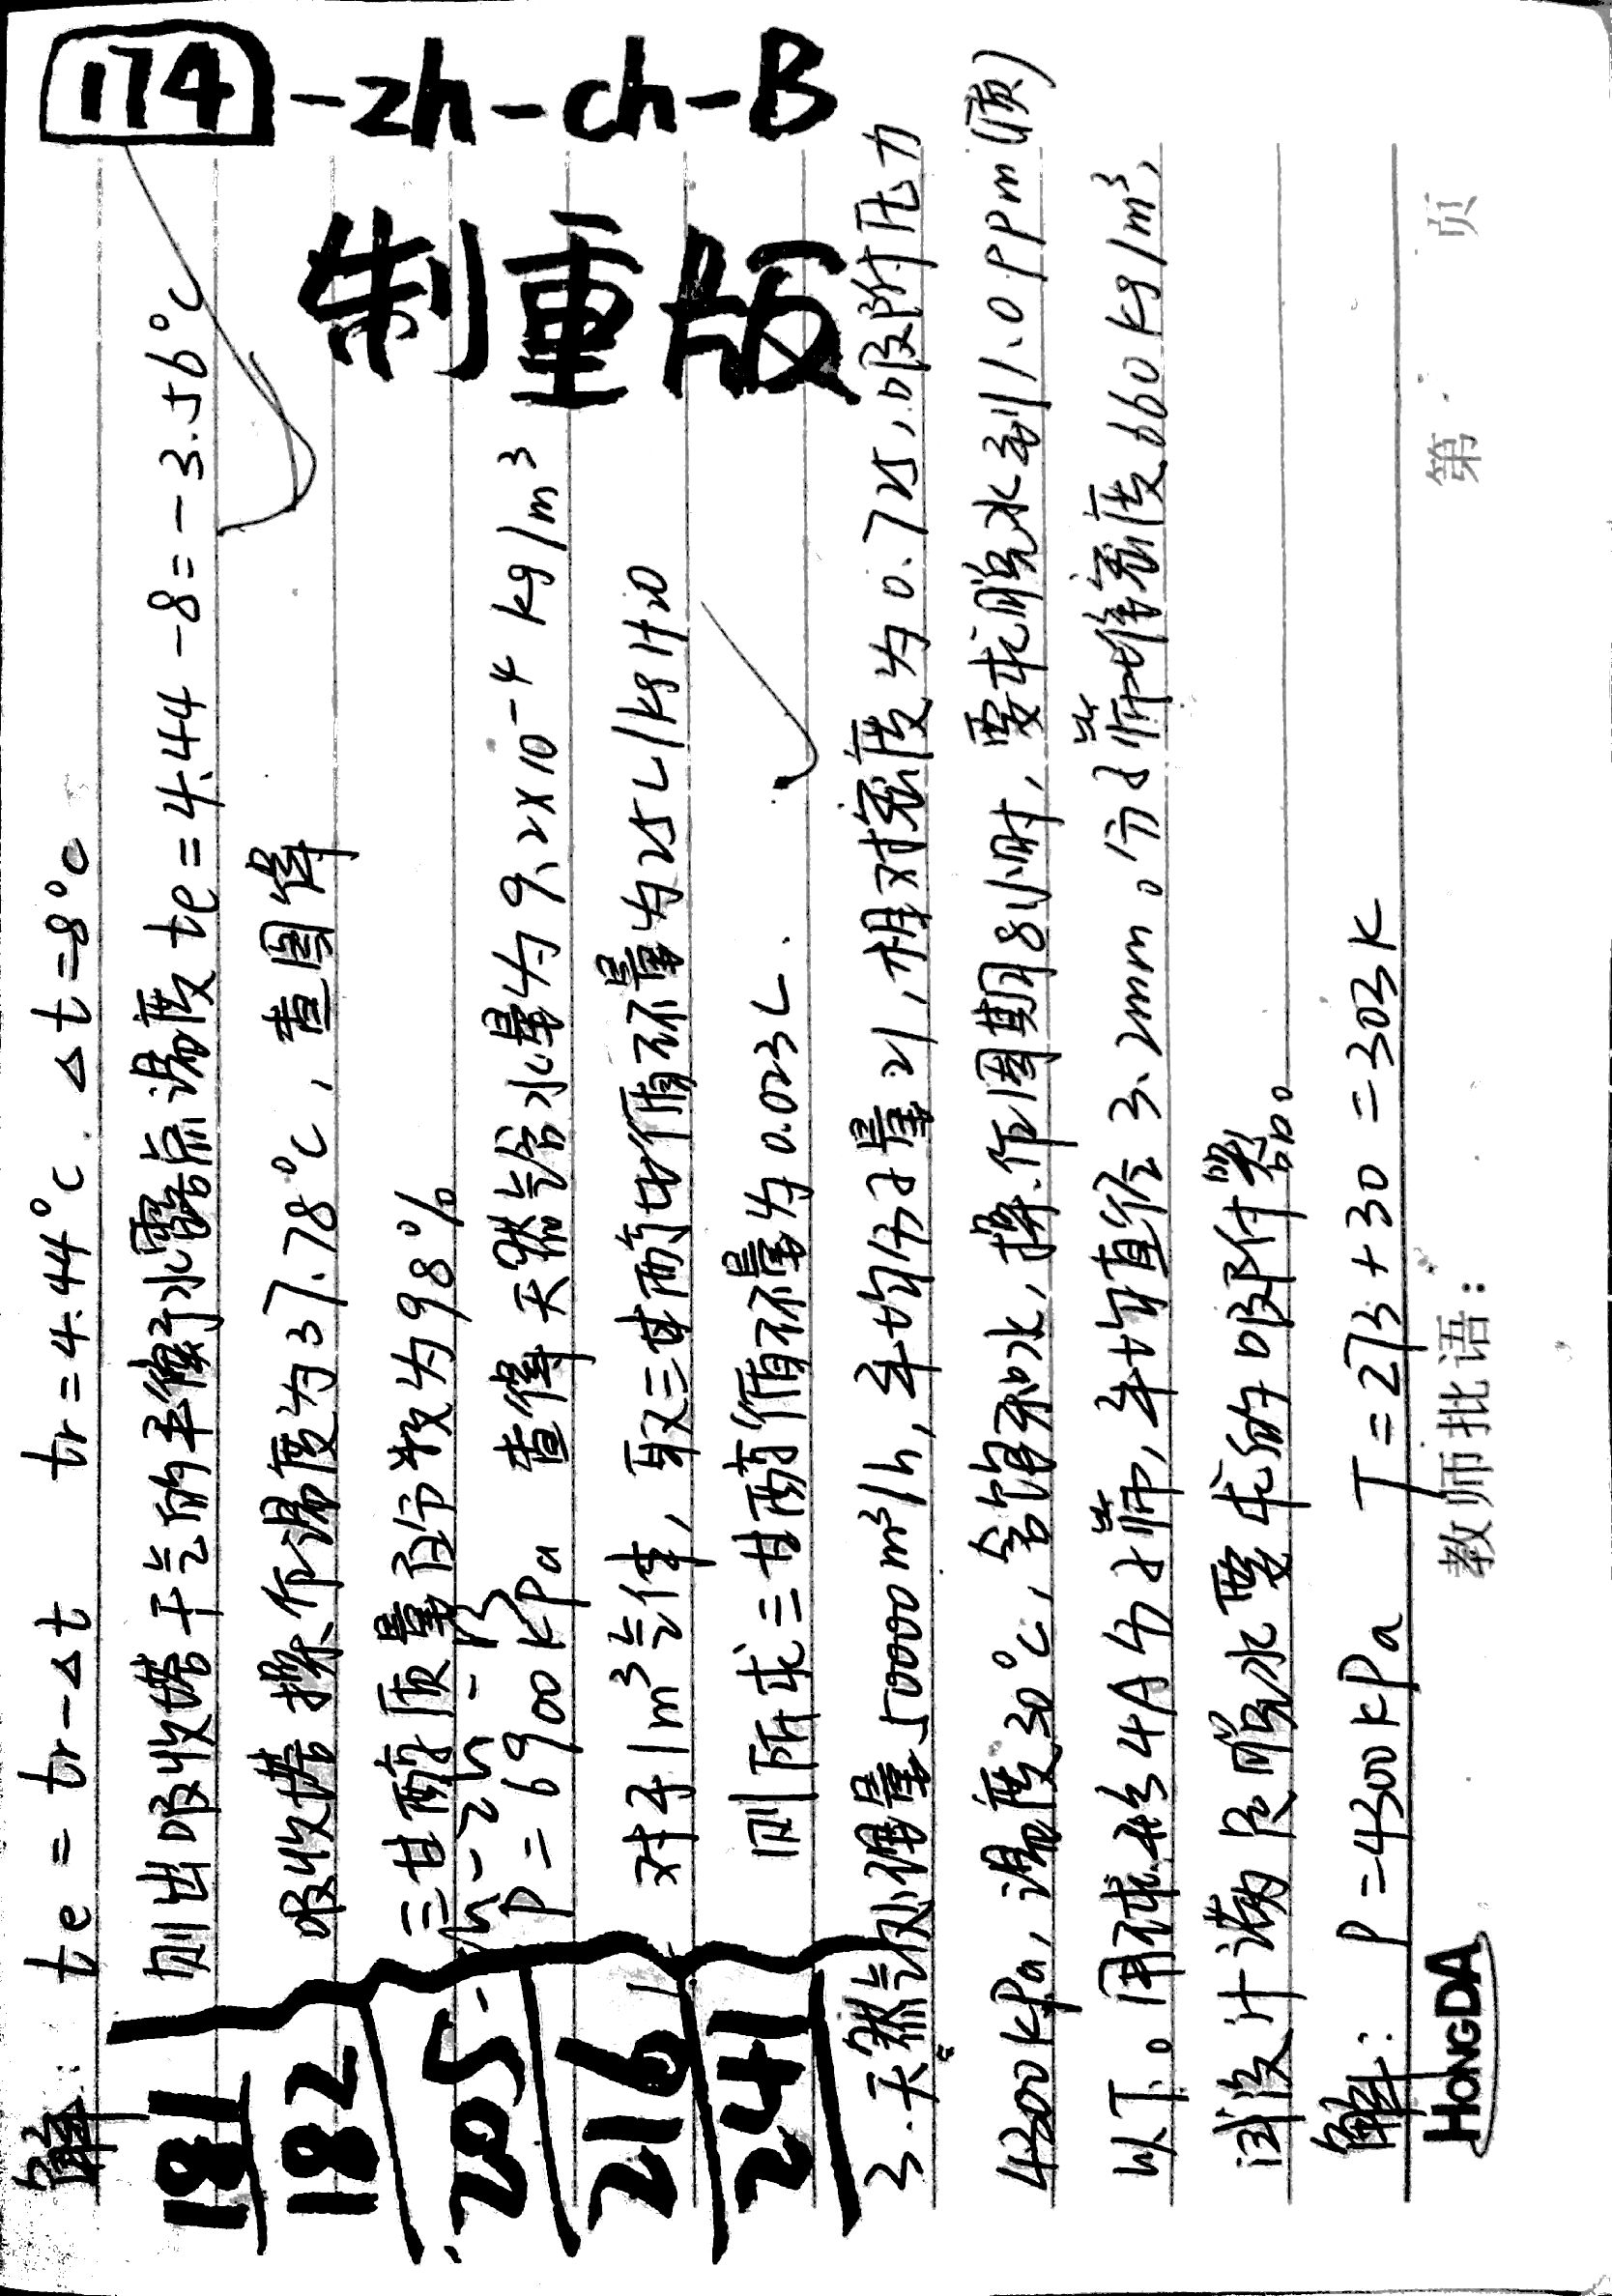 174-zh-ch-B
制重版
解: te = tr-Δt tr=4.44°C. Δt=8°C
则出吸收塔干气的平衡水露点温度te=4.44-8=-3.56°C
吸收塔操作温度为37.78°C,查图得
三甘醇质量百分数为98%
P=6900KPa 查得天然气含水量为9.2×10-4 kg/m³
对于1m³气体,取三甘醇循环量为25L/kgH20
则所求三甘醇循环量为0.023L.
181
182
205
216
241
3.天然气处理量50000m³/h,平均分子量21,相对密度为0.725,吸附压力
4300KPa,温度30°C,含饱和水,操作周期8小时,要求脱水到1.0PPm(质)
以下。用球形4A分子筛,平均直径3.2mm。分子筛堆密度660Kg/m³,
试设计满足脱水要求的吸附器。
解: P=4300KPa T=273+30=303K
HONGDA
教师批语:
第 页